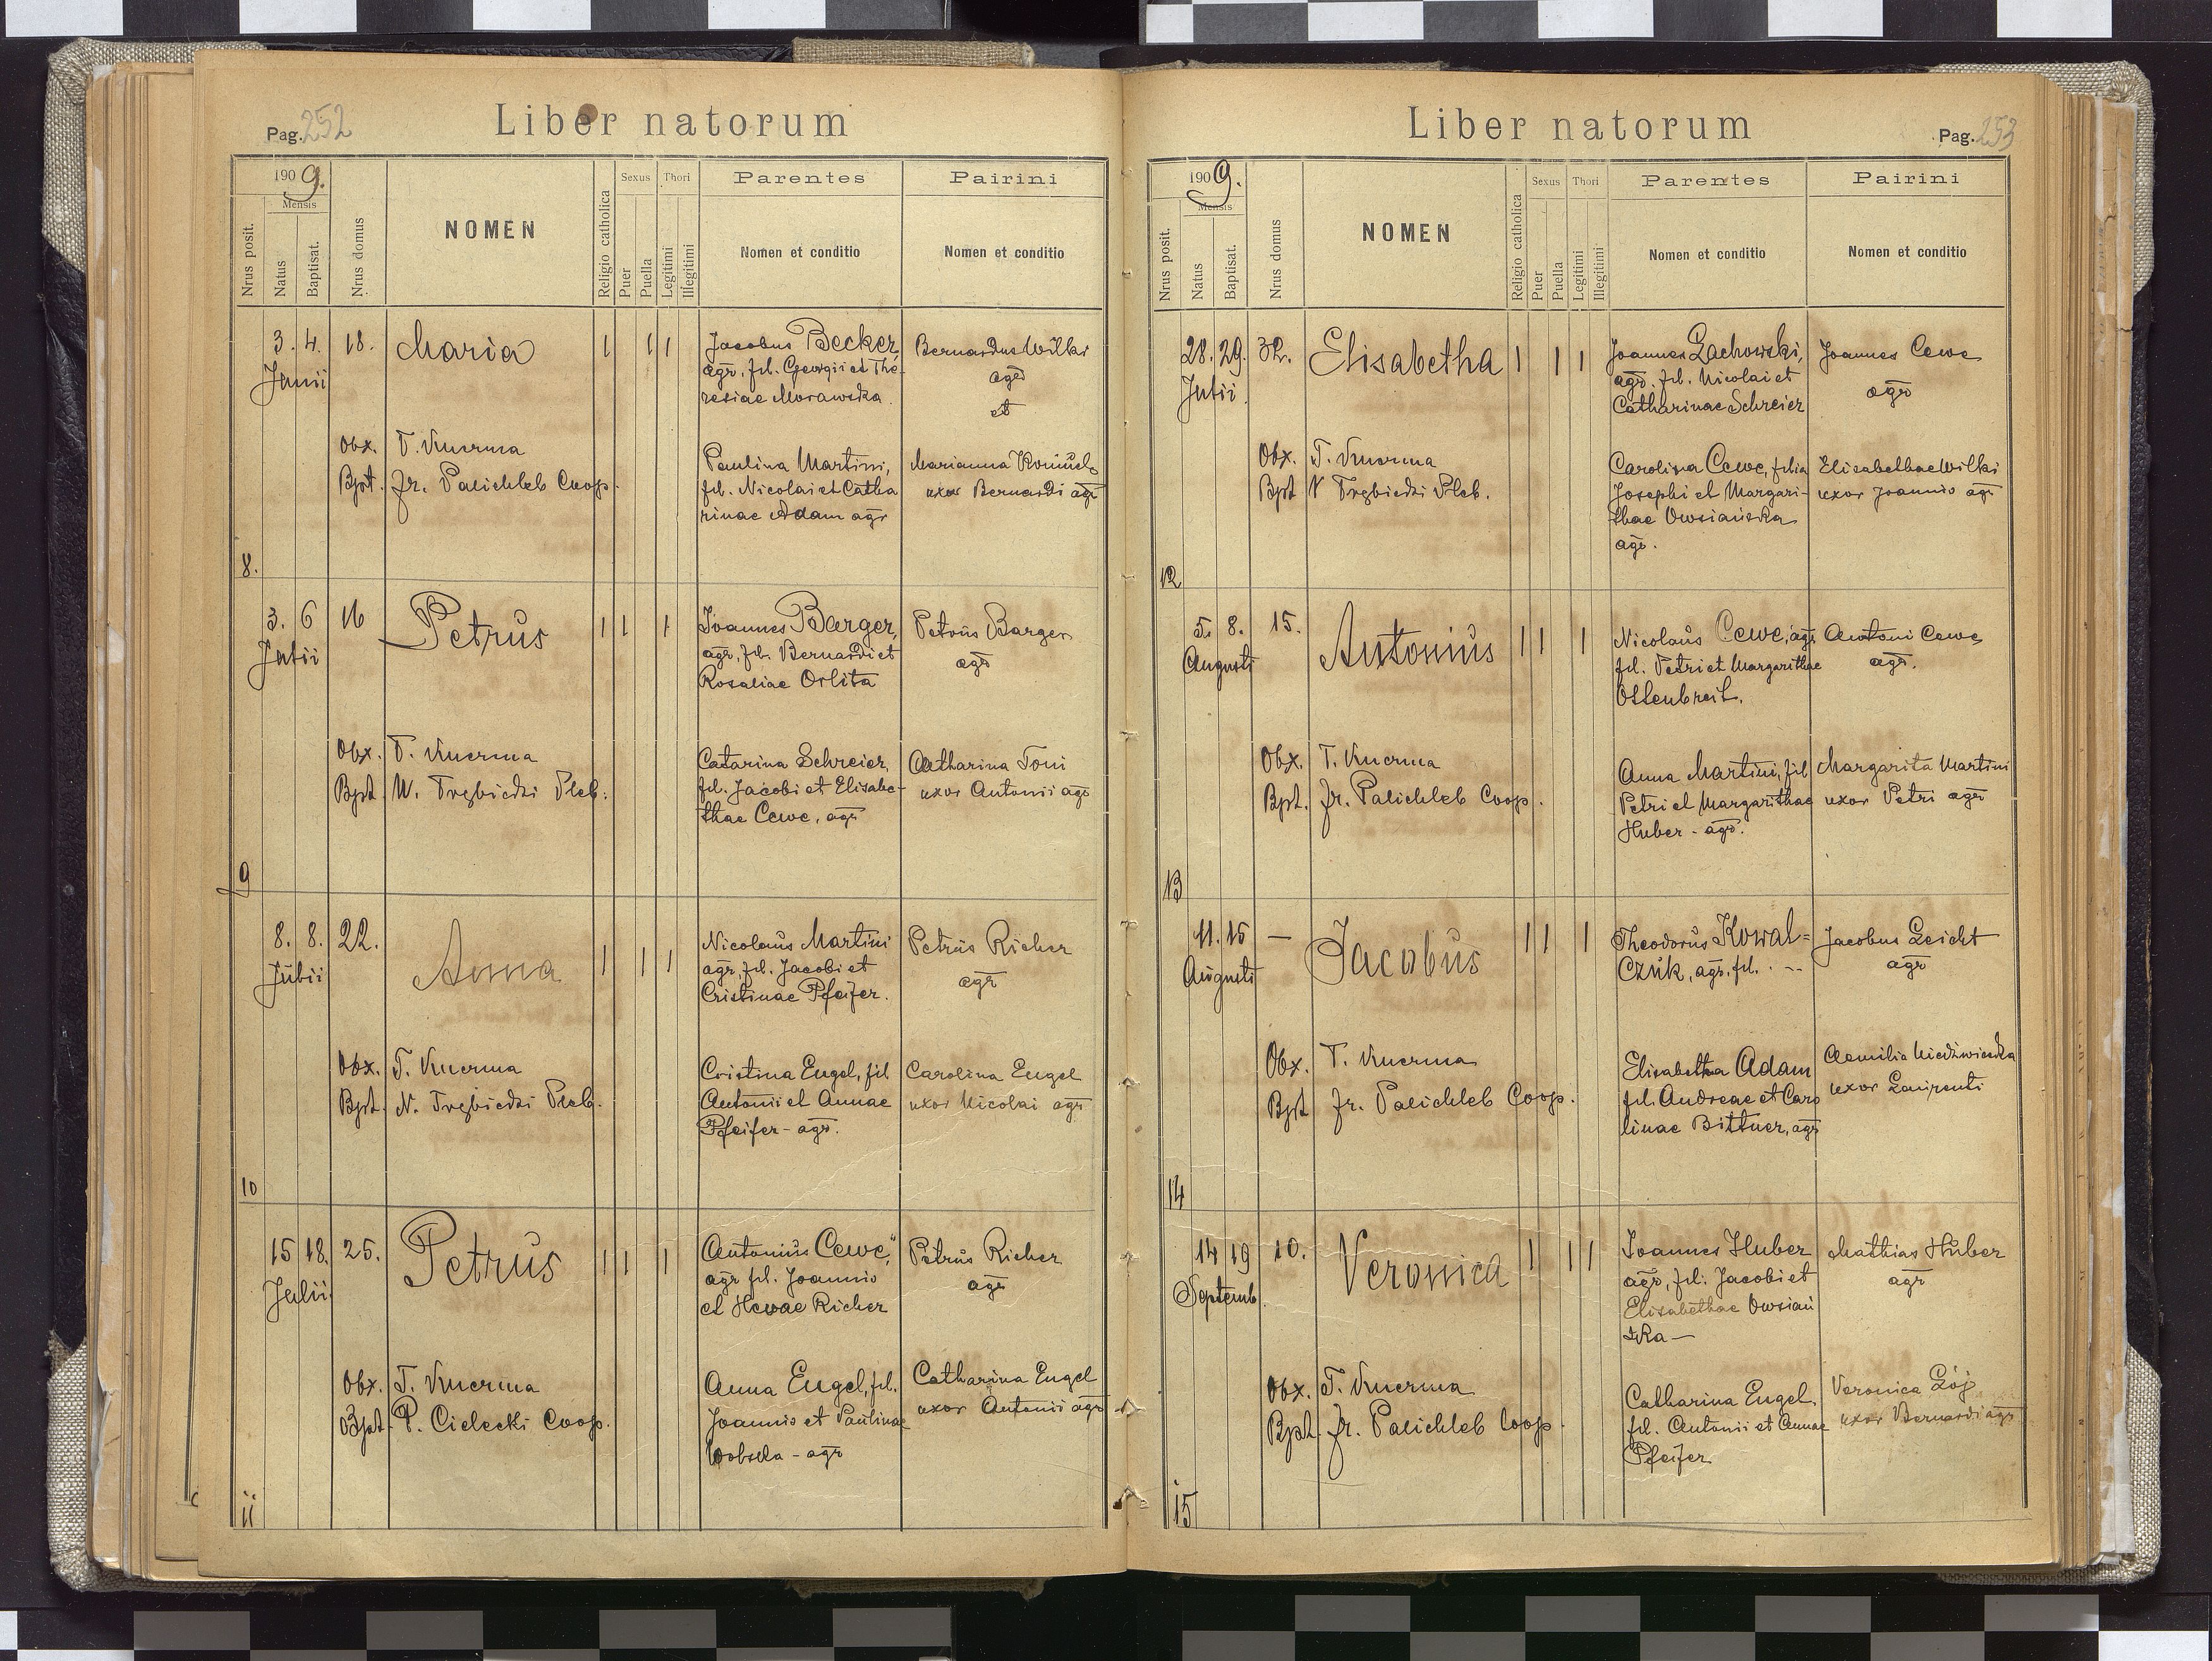 Pag. 252
Liber natorum
1909.
Mensis
Nrus posit.
Natus
Baptisat.
Nrus domus
NOMEN
Religio catholica
Sexus
Puer
Puella
Thori
Legitimi
Illegitimi
Parentes
Nomen et conditio
Pairini
Nomen et conditio
8.
3. 4. 18. Maria 1 1 1
Junii
Obx. T. Kucrma
Bpt. Fr. Palichleb Coop.
Jacobus Becker,
agr, fil. Georgii et The-
resiae Morawska.
Paulina Martini,
fil. Nicolai et Catha
rinae Adam agr
Bernardus Wilki
agr
et
Marianna
uxor Bernardi agr
9
3. 6 16 Petrus 1 1 1
Julii
Obx. T. Kucrma
Bpt W. Trzbicdzi Pleb.
Joannes Barger,
agr, fil. Bernardi et
Rosaliae Orlita
Catarina Schreier,
fil. Jacobi et Elisabe-
thae Cewe, agr
Petrus Barger
agr
Catharina Toni
uxor Antonii agr
10
8. 8. 22. Anna 1 1 1
Julii
Obx. T. Kucrma
Bpt. N. Trzbicdzi Pleb.
Nicolaus Martini
agr, fil. Jacobi et
Cristinae Pfeifer.
Cristina Engel, fil
Antonii et Annae
Pfeifer - agr.
Petrus Richer
agr
Carolina Engel
uxor Nicolai agr
11
15 18. 25. Petrus 1 1 1
Julii
Obx. T. Kucrma
Bpt. P. Cielecki Coop.
Antonius Cewe,
agr fil. Joannis
et Hevae Richer
Anna Engel, fil.
Joannis et Paulinae
Wobscka - agr
Petrus Richer
agr
Catharina Engel
uxor Antonii agr
Liber natorum
Pag. 253
1909.
Mensis
Nrus posit.
Natus
Baptisat.
Nrus domus
NOMEN
Religio catholica
Sexus
Puer
Puella
Thori
Legitimi
Illegitimi
Parentes
Nomen et conditio
Pairini
Nomen et conditio
12
28. 29. 32. Elisabetha 1 1 1
Julii.
Obx. T. Kucrma
Bpt N Trzbicdzi Pleb.
Joannes Lachowski,
agr. fil. Nicolai et
Catharinae Schreier
Carolina Cewe, filia
Josephi et Margari-
thae Owsiańska
agr.
Joannes Cewe
agr
Elisabethae Wilki
uxor Joannis agr
13
5. 8. 15. Antonius 1 1 1
Augusti
Obx. T. Kucrma
Bpt. Fr. Palichleb Coop.
Nicolaus Cewe, agr
fil. Petri et Margarithae
Ottenbreit.
Anna Martini, fil
Petri et Margarithae
Huber - agr.
Antoni Cewe
agr.
Margarita Martini
uxor Petri agr
14
11. 15 — Jacobus 1 1 1
Augusti
Obx. T. Kucrma
Bpt Fr. Palichleb Coop.
Theodorus Kowal=
czuk, agr, fil. . --
Elisabetha Adam
fil. Andreae et Caro
linae Bittner, agr
Jacobus Leicht
agr
Aemilia Niedźwiedzka
uxor Laurenti
15
14 19 10. Veronica 1 1 1
Septemb.
Obx. T. Kucrma
Bpt. Fr. Palichleb Coop.
Joannes Huber
agr, fil. Jacobi et
Elisabethae Owsiań
ska —
Catharina Engel,
fil. Antonii et Annae
Pfeifer
Mathias Huber
agr
Veronica Łój
uxor Bernardi agr